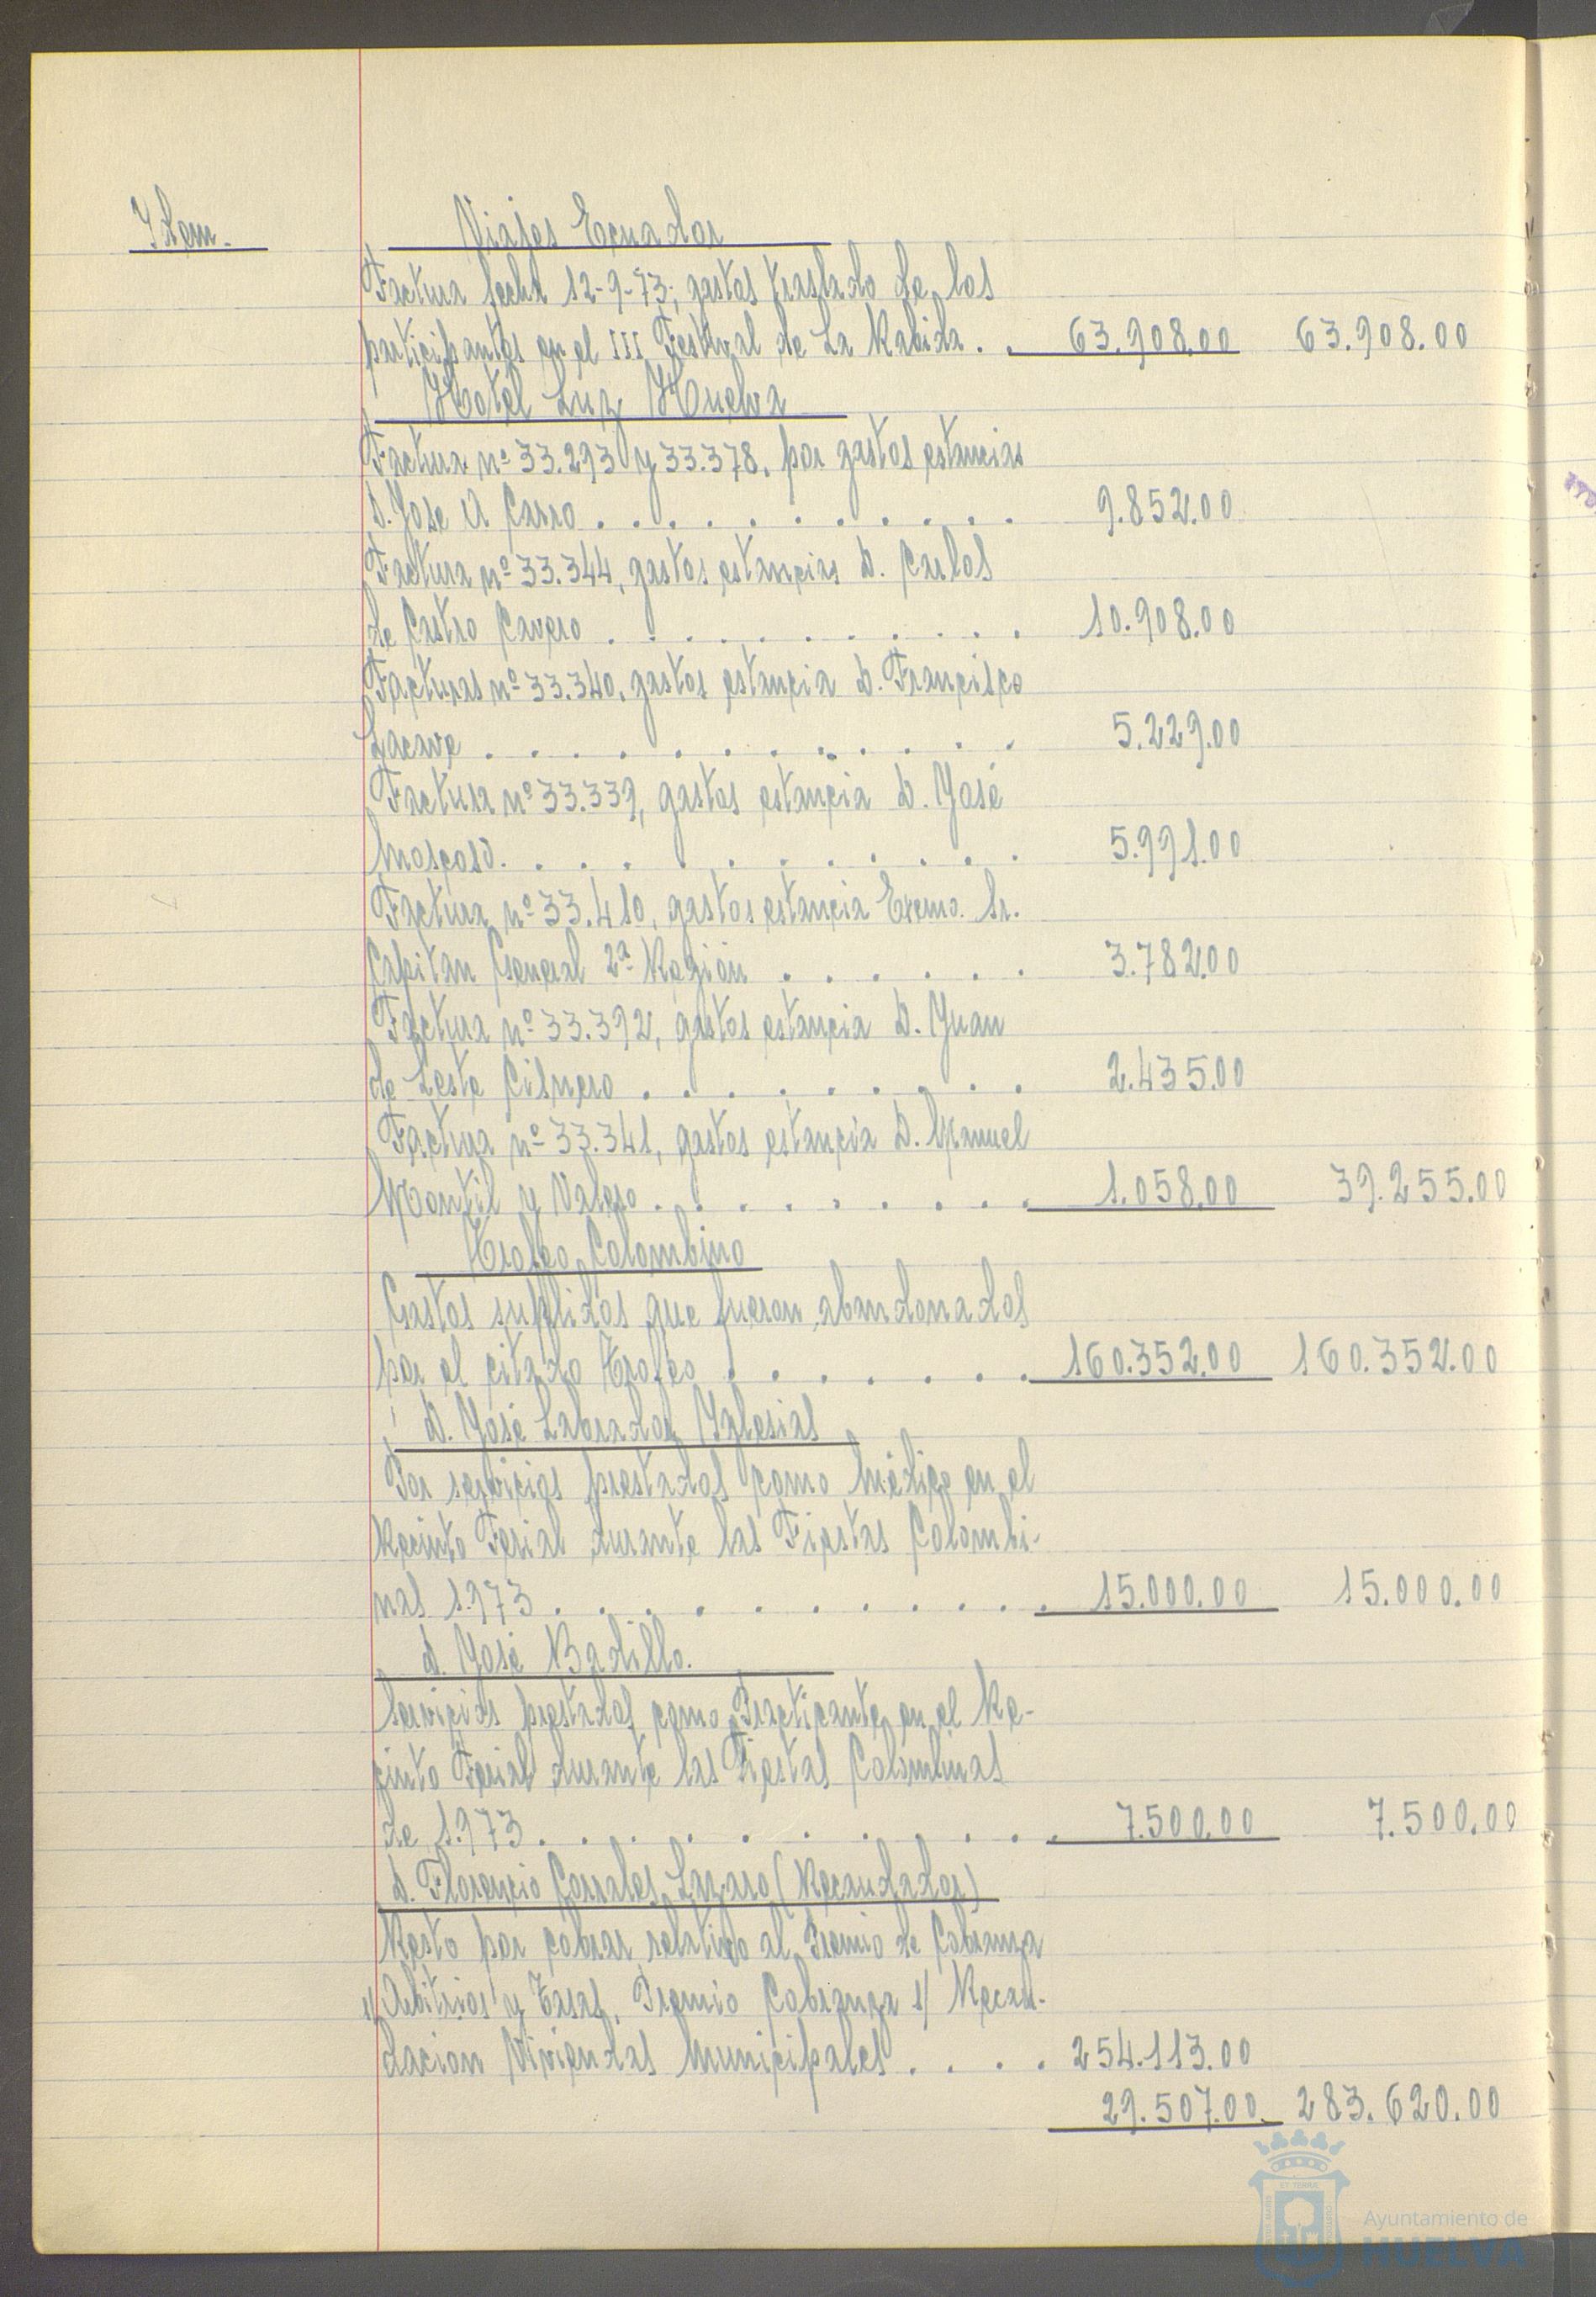 Item.
Viajes Ecuador
Factura fecha 12-9-73; gastos traslado de los
participantes en el III Festival de La Rabida . . 63.908.00 63.908.00
Hotel Luz Huelva
Factura nº 33.293 y 33.378, por gastos estancias
D. Jose A Carro . . . . . . . . . . 9.852.00
Factura nº 33.344, gastos estancias D. Carlos
de Castro Cavero . . . . . . . . . 10.908.00
Facturas nº 33.340, gastos estancia D. Francisco
Lacave . . . . . . . . . . . 5.229.00
Factura nº 33.339, gastos estancia D. José
Moscoso. . . . . . . . . . . 5.991.00
Factura nº 33.410, gastos estancia Excmo. Sr.
Capitan General 2ª Región . . . . . . 3.782.00
Factura nº 33.392, gastos estancia D. Juan
de Leste Cisnero . . . . . . . . 2.435.00
Factura nº 33.341, gastos estancia D. Manuel
Montil y Valero . . . . . . . . . 1.058.00 39.255.00
Trofeo Colombino
Gastos suplidos que fueron abandonados
por el citado Trofeo . . . . . . . 160.352.00 160.352.00
D. José Labrador Yglesias
Por servicios prestados como Médico en el
Recinto Ferial durante las Fiestas Colombi-
nas 1.973 . . . . . . . . . . 15.000.00 15.000.00
D. José Badillo.
Servicios prestados como Practicante en el Re-
cinto Ferial durante las Fiestas Colombinas
de 1.973 . . . . . . . . . . 7.500.00 7.500.00
D. Florencio Corrales Lazaro (Recaudador)
Resto por cobrar relativo al Premio de Cobranza
s/ Arbitrios y Tasas, Premio Cobranza s/ Recau-
dacion Viviendas Municipales . . . . 254.113.00
29.507.00 283.620.00
Ayuntamiento de
HUELVA